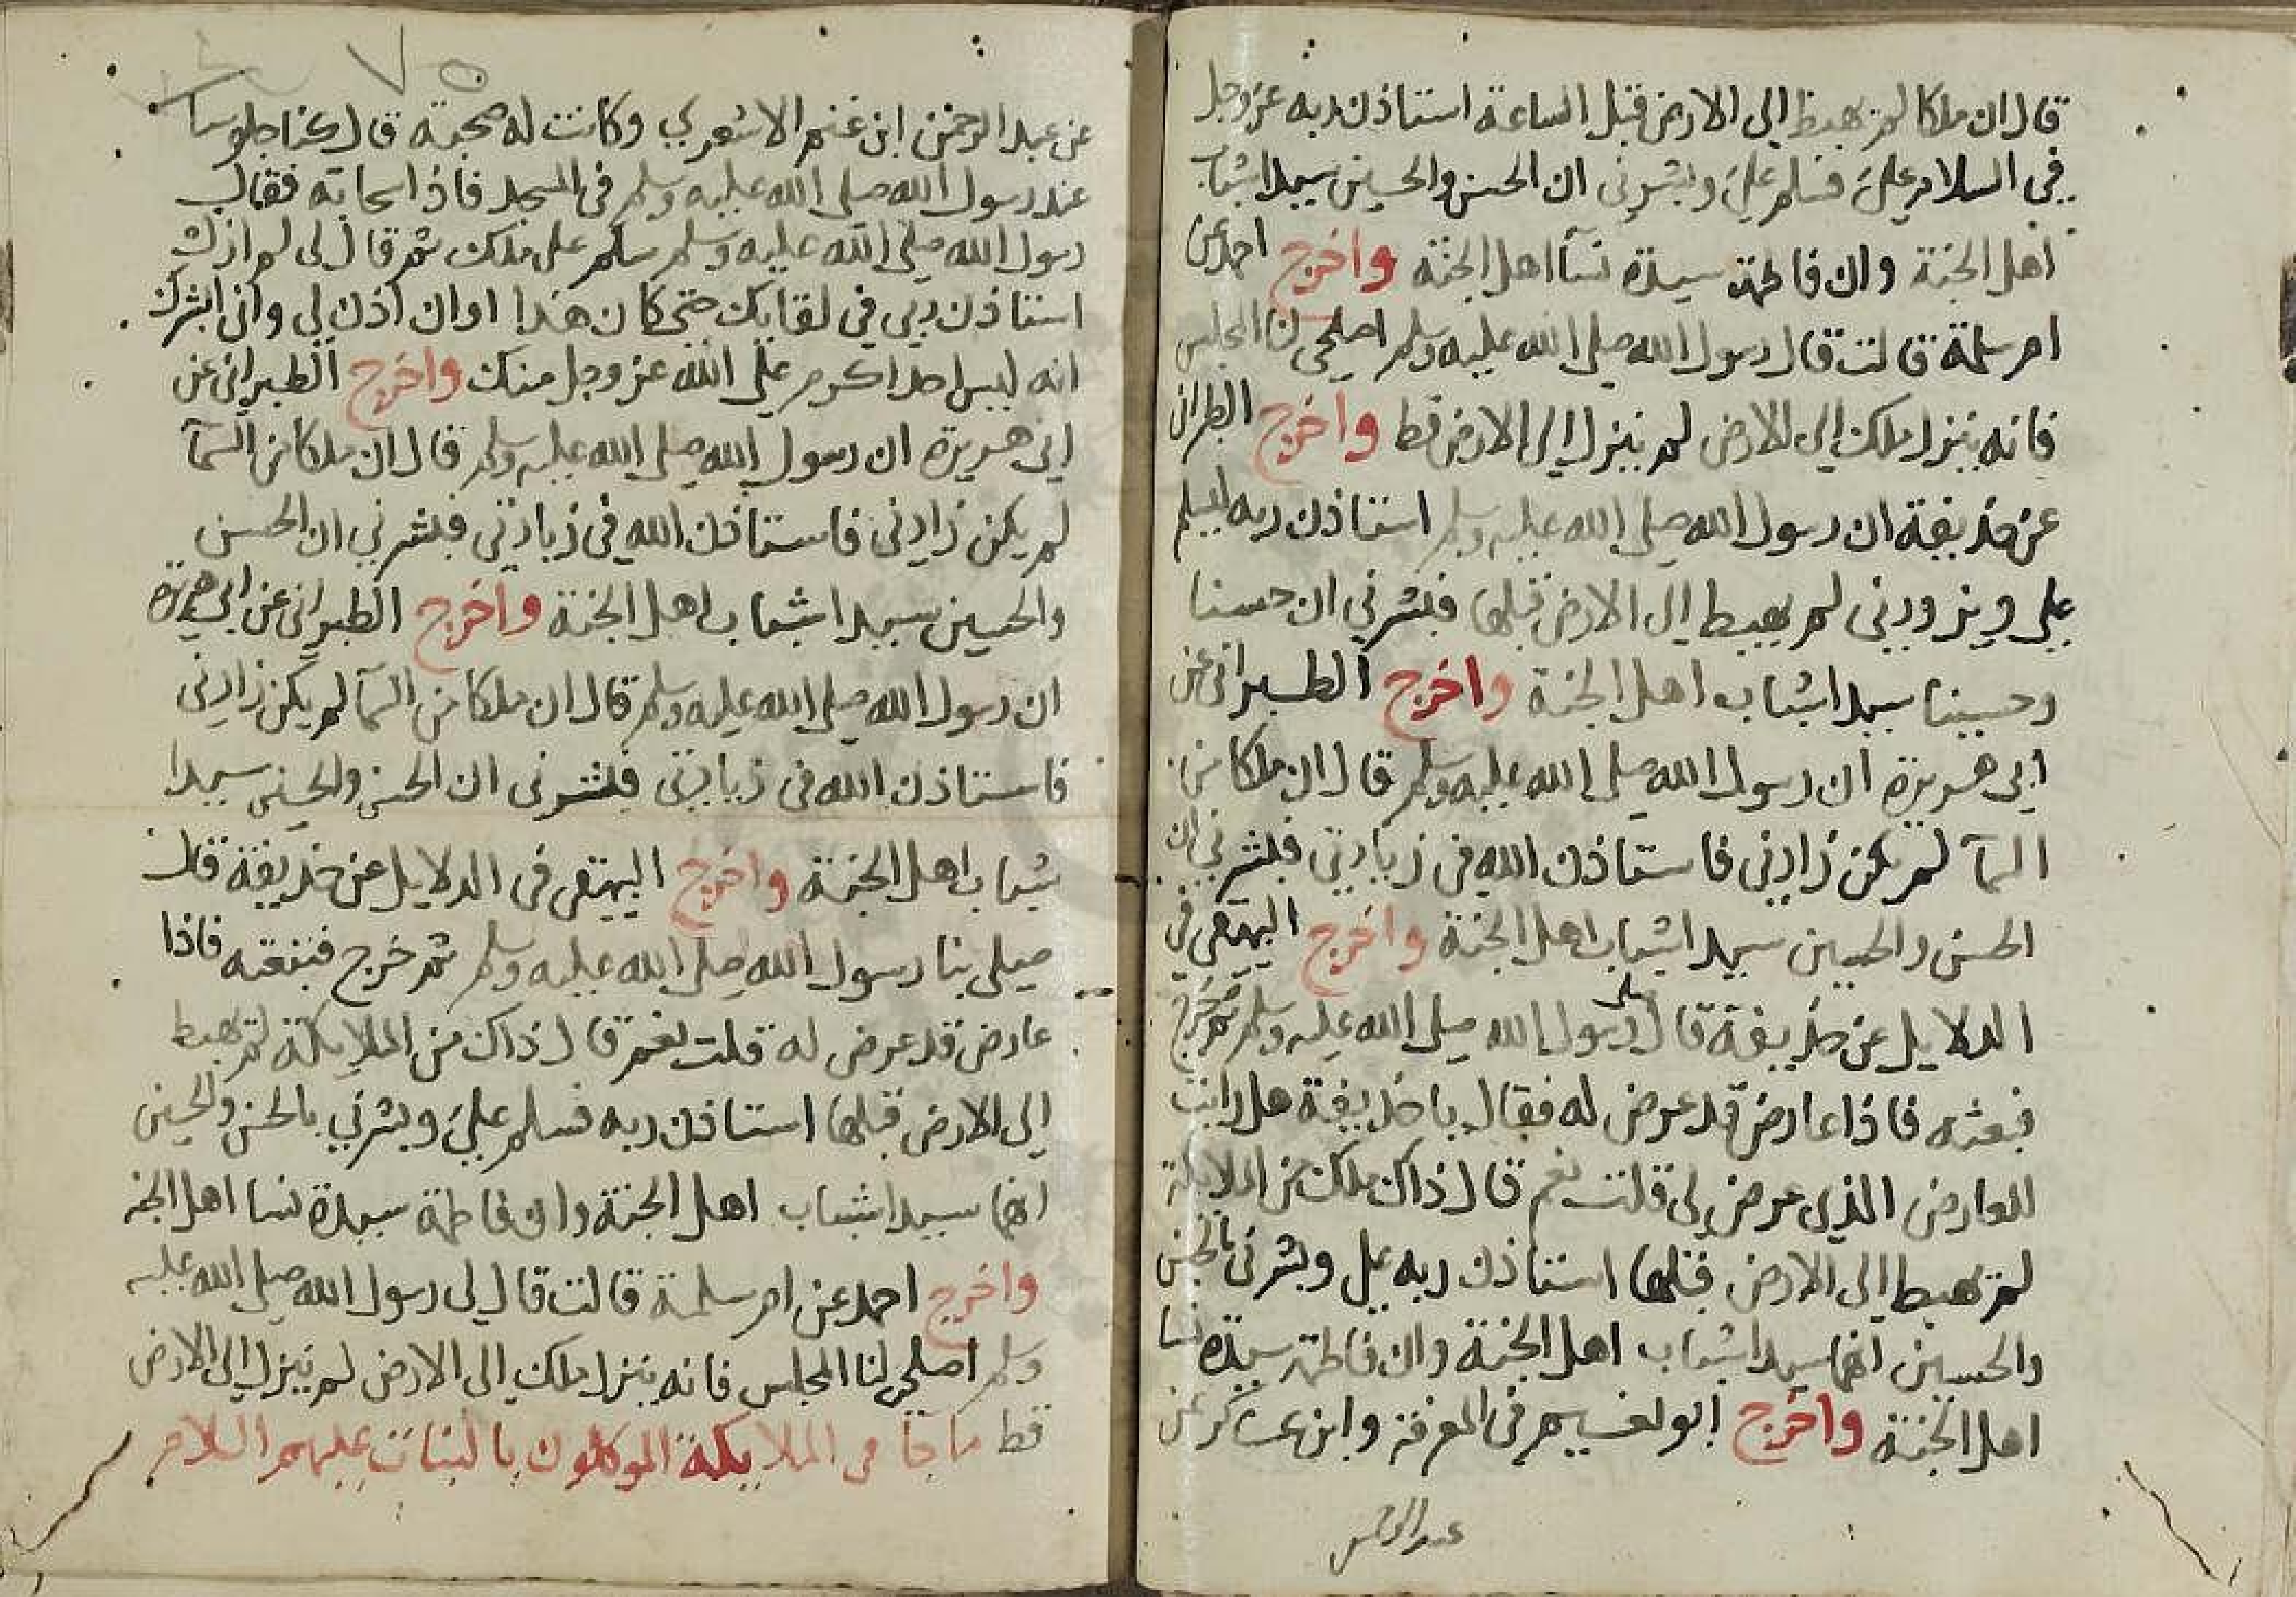 قال ان ملكا لم يهبط الى الارض قبل الساعة استاذن ربه عز وجل
في السلام علي فسلم علي وبشرني ان الحسن والحسين سيدا شباب
اهل الجنة وان فاطمة سيدة نسآ اهل الجنة واخرج احمد عن
ام سلمة قالت قال رسول الله صلى الله عليه وسلم اصلحي لنا المجلس
فانه ينزل ملك الى الارض لم ينزل الى الارض قط واخرج الطبراني
عن حذيفة ان رسول الله صلى الله عليه وسلم استاذن ربه ليسلم
علي ويزورني لم يهبط الى الارض قبلها فبشرني ان حسنا
وحسينا سيدا شباب اهل الجنة واخرج الطبراني عن
ابي هريرة ان رسول الله صلى الله عليه وسلم قال ان ملكا من
السمآ لم يكن زارني فاستاذن الله في زيارتي فبشرني ان
الحسن والحسين سيدا شباب اهل الجنة واخرج البيهقي في
الدلايل عن حذيفة قال صلى رسول الله صلى الله عليه وسلم ثم خرج
فبعثه فاذا عارض قد عرض له فقال يا حذيفة هل رايت
العارض الذي عرض لي قلت نعم قال ذاك ملك من الملايكة
لم يهبط الى الارض قبلها استاذن ربه علي وبشرني بالحسن
والحسين انهما سيدا شباب اهل الجنة وان فاطمة سيدة نسا
اهل الجنة واخرج ابو لغسيم في المعرفة وابن عساكر عن
عبد الرحمن
عن عبد الرحمن ابن غنم الاشعري وكانت له صحبة قال كنا جلوسا
عند رسول الله صلى الله عليه وسلم في المسجد فاذا سحابة فقال
رسول الله صلى الله عليه وسلم سلم علي ملك ثم قال لي لم ازل
استاذن ربي في لقايك حتى كان هذا اوان اذن لي واني ابشرك
انه ليس احد اكرم على الله عز وجل منك واخرج الطبراني عن
ابي هريرة ان رسول الله صلى الله عليه وسلم قال ان ملكا من السمآ
لم يكن زارني فاستاذن الله في زيارتي فبشرني ان الحسن
والحسين سيدا شباب اهل الجنة واخرج الطبراني عن ابي هريرة
ان رسول الله صلى الله عليه وسلم قال ان ملكا من السمآ لم يكن زارني
فاستاذن الله في زيارتي فبشرني ان الحسن والحسين سيدا
شباب اهل الجنة واخرج البيهقي في الدلايل عن حذيفة قال
صلى بنا رسول الله صلى الله عليه وسلم ثم خرج فتبعته فاذا
عارض قد عرض له قلت نعم قال ذاك من الملايكة لم يهبط
الى الارض قبلها استاذن ربه فسلم علي وبشرني بالحسن والحسين
انهما سيدا شباب اهل الجنة وان فاطمة سيدة نسا اهل الجنة
واخرج احمد عن ام سلمة قالت قال لي رسول الله صلى الله عليه
وسلم اصلحي لنا المجلس فانه ينزل ملك الى الارض لم ينزل الى الارض
قط ما جا في الملايكة الموكلون بالنبات عليهم السلام